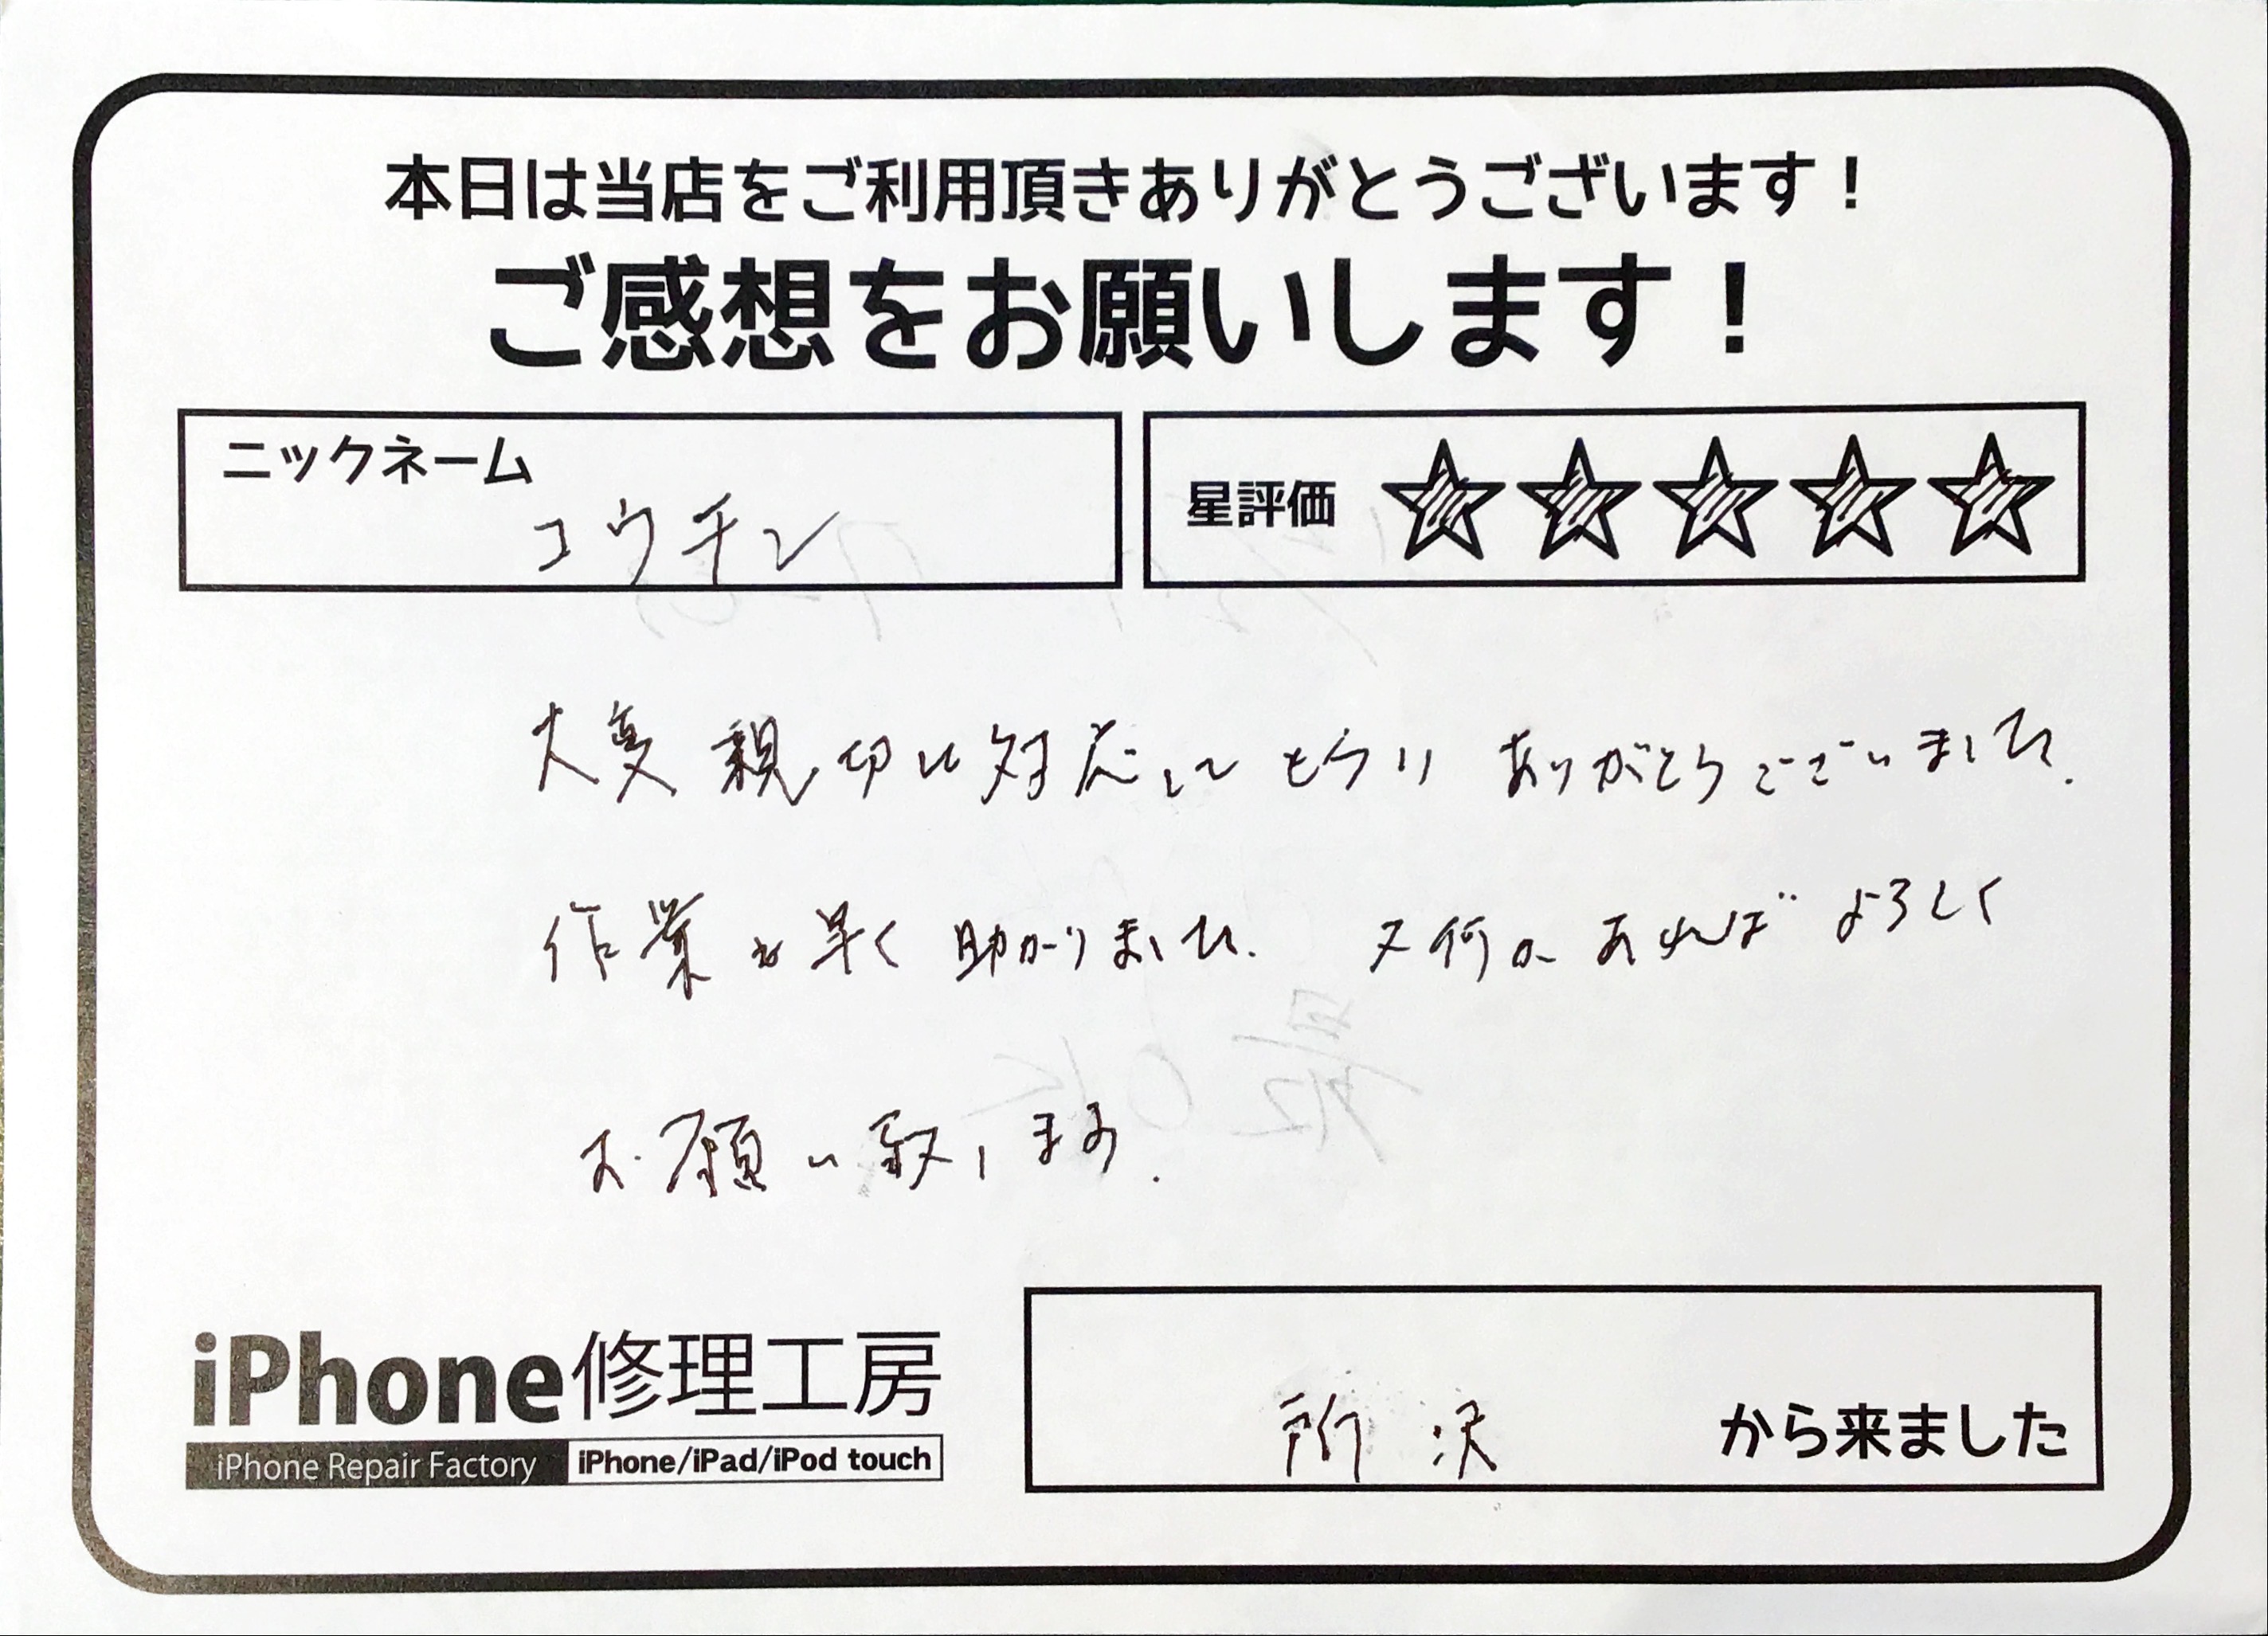 本日は当店をご利用頂きありがとうございます！
ご感想をお願いします！
ニックネーム
コウチン
星評価 ★★★★★
大変親切に対応してもらい ありがとうございました.
作業も早く助かりました. 又何かあればよろしく
お願い致します.
iPhone修理工房
iPhone Repair Factory iPhone/iPad/iPod touch
所沢 から来ました